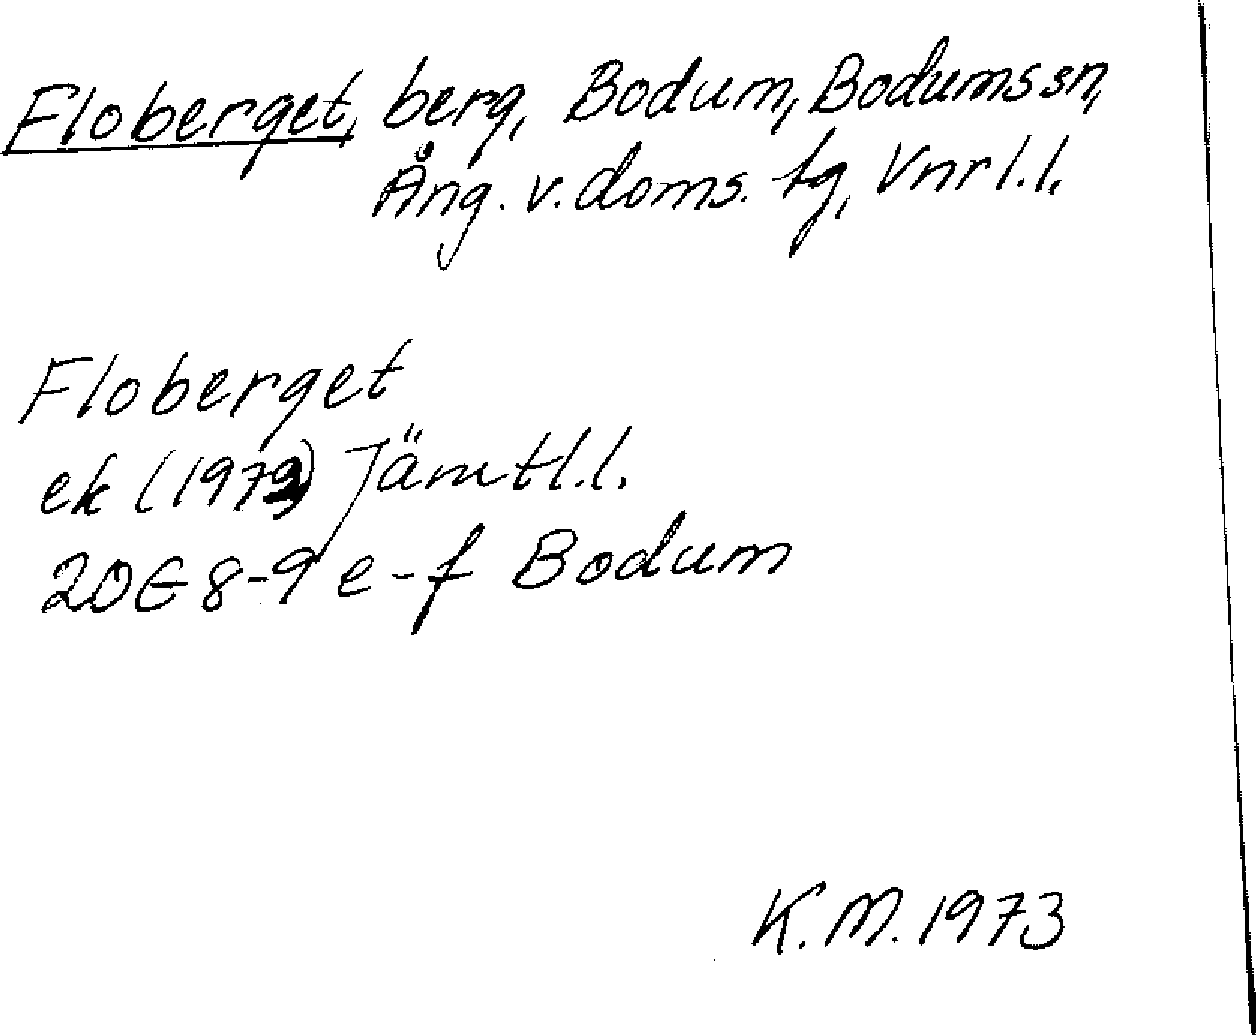 Floberget, berg, Bodum, Bodums sn,
Ång. v. doms. tg, Vnrl. l.
Floberget
ek (1972) Jämtl. l.
20G 8-9 e-f Bodum
K. M. 1973